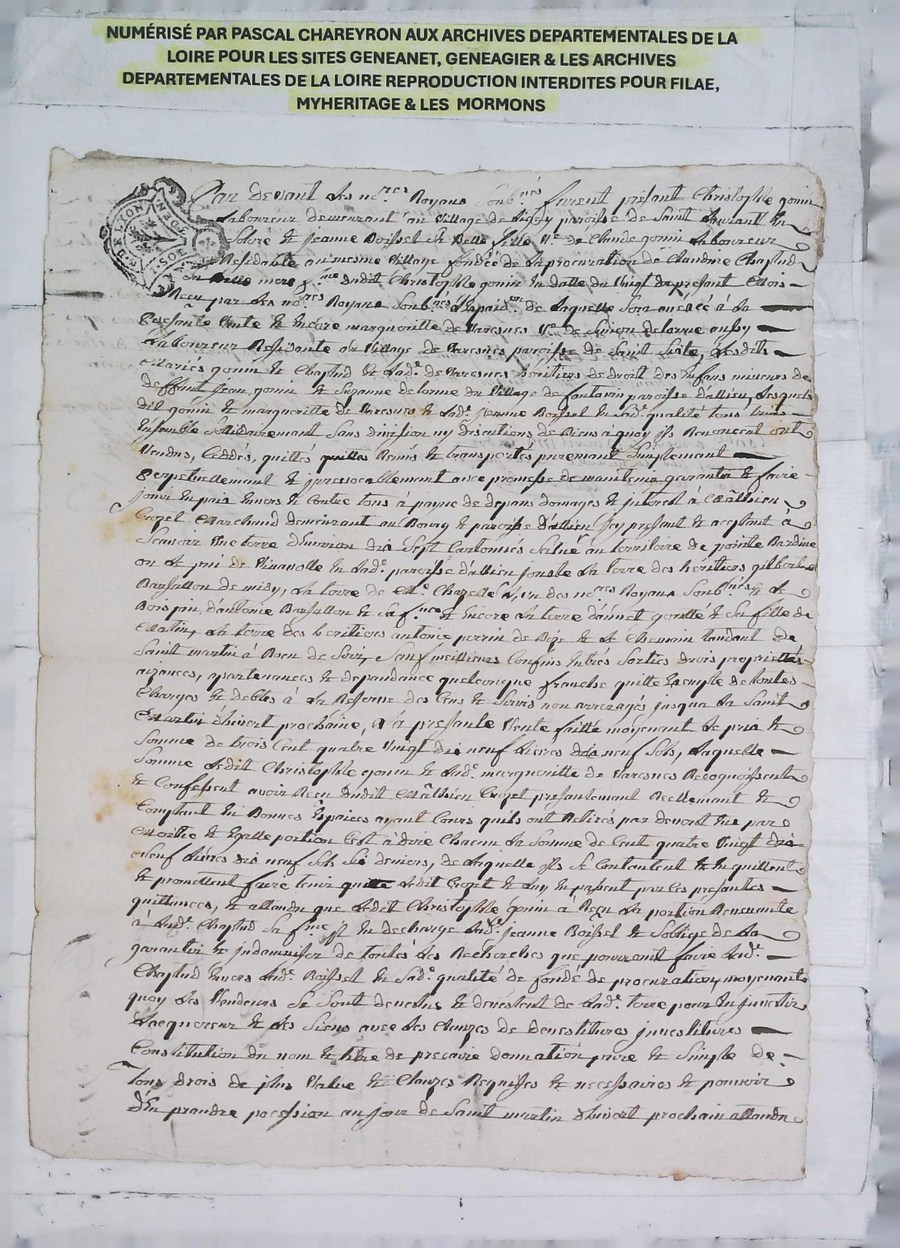 NUMÉRISÉ PAR PASCAL CHAREYRON AUX ARCHIVES DEPARTEMENTALES DE LA
LOIRE POUR LES SITES GENEANET, GENEAGIER & LES ARCHIVES
DEPARTEMENTALES DE LA LOIRE REPRODUCTION INTERDITES POUR FILAE,
MYHERITAGE & LES MORMONS
Par devant les nres Royaux soubnes furent présant Christophle gonin
Laboureur demeurant au village de paroisse de Saint en
Solore & Jeanne Boissel sa belle fille ve de Claude gonin Laboureur
Residante au mesme village fondée de la procuration de Claudine Chaplud
sa belle mere & dudit Christophle gonin en datte du vingt de présant mois
Reçu par les nres Royaux soubnes de laquelle sera à la
présante vente & encore margueritte de Varesnes ve de Simeon delorme aussy
Labonreur Residante au village de Varesnes paroisse de Saint Sixte, lesdits
maries gonin & Chaplud & lade de Varesnes heritiers de droit des enfans mineurs de
deffunt Jean gonin & Suzanne delorme du village de paroisse d'allieu, lesquels
dit gonin & margueritte de Varesnes & lade Jeanne Boissel en lade qualité tous trois
ensemble solidairement sans division ny discutions de Biens à quoy ils Renoncent ont
vendus, ceddés, quittés Remis & transportés purement simplement
perpetuellement & jrrevocablement avec promesse de maintenir garantir & faire
jouir en paix envers & contre tous à payne de depans domages & jnterest a Mathieu
Crozet Marchand demeurant au Bourg & paroisse d'allieu jcy présant & acçeptant à
Scavoir une terre d'environ dix sept Cartonnés scitué au territoire de pointe Bardine
ou de en lade paroisse d'allieu jouxte la terre des heritiers gilbert
Barjallon de midy, la terre de Me Chazelle l'un des nres Royaux soubnes & de
Bois pin d'antoine Barjallon & sa fme & encore la terre d'annet & sa fille de
Matin, la terre des heritiers antoine perrin de Bize & le Chemain tandant de
Saint martin à Boen de Soir, sauf meillieurs Confins entrés Sorties drois proprietés
aizances, apartenances & dependance quelconque franche quitte & exempte de toutes
Charges & debtes à la Reserve des Cens & Servis non arrerages jusqua la Saint
Martin d'hivert prochaine, la présante vente faitte moyenant le prix &
Somme de trois Cent quatre vingt dix neuf Livres dix neuf Sols, laquelle
Somme ledit Christophle gonin & lade margueritte de Varesnes Recognoissent
& Confessent avoir Reçu dudit Mathieu Crozet présantement Reellement &
Comptant en Bonnes Espaices ayant Cours quils ont Retirés par devant eux par
Moittié & Egalle portion C'est à dire Chacun la Somme de Cent quatre vingt dix
neuf Livres dix neuf Sols Six deniers, de laquelle ils se Contantent & en quittent
& promettent faire tenir quitte ledit Crozet & luy en passent par ces présantes
quittances, & attandu que ledit Christophle gonin à Reçu la portion Revenante
à lade Chaplud sa fme jl en decharge lade jeanne Boissel & s'oblige de la
garantir & indamniser de toutes les Recherches que pourroient faire lade
Chaplud envers lade Boissel en lade qualité de fondé de procuration, moyenant
quoy les vandeurs se sont devetus & devestent de lade terre pour en jnvestir
Lacquereur & les Siens avec les Clauzes de devestitures jnvestitures
Constitution du nom & titre de precaire donnation pure & simple de
Tous drois de plus value & Clauzes Requises & necessaires & pouvoir
d'En prandre pocession au jour de Saint martin d'hivert prochain attandu